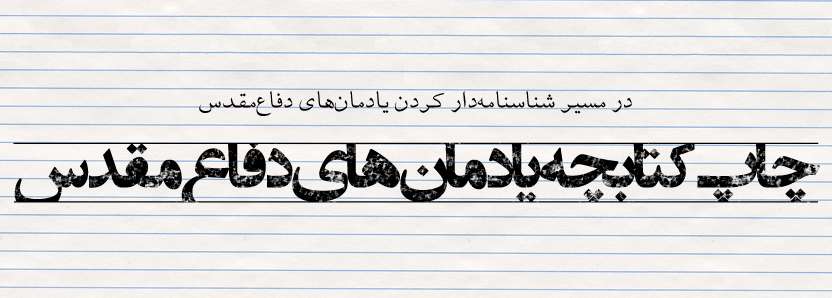 در مسیر شناسنامه‌دار کردن یادمان‌های دفاع‌مقدس
چاپ کتابچه یادمان‌های دفاع مقدس